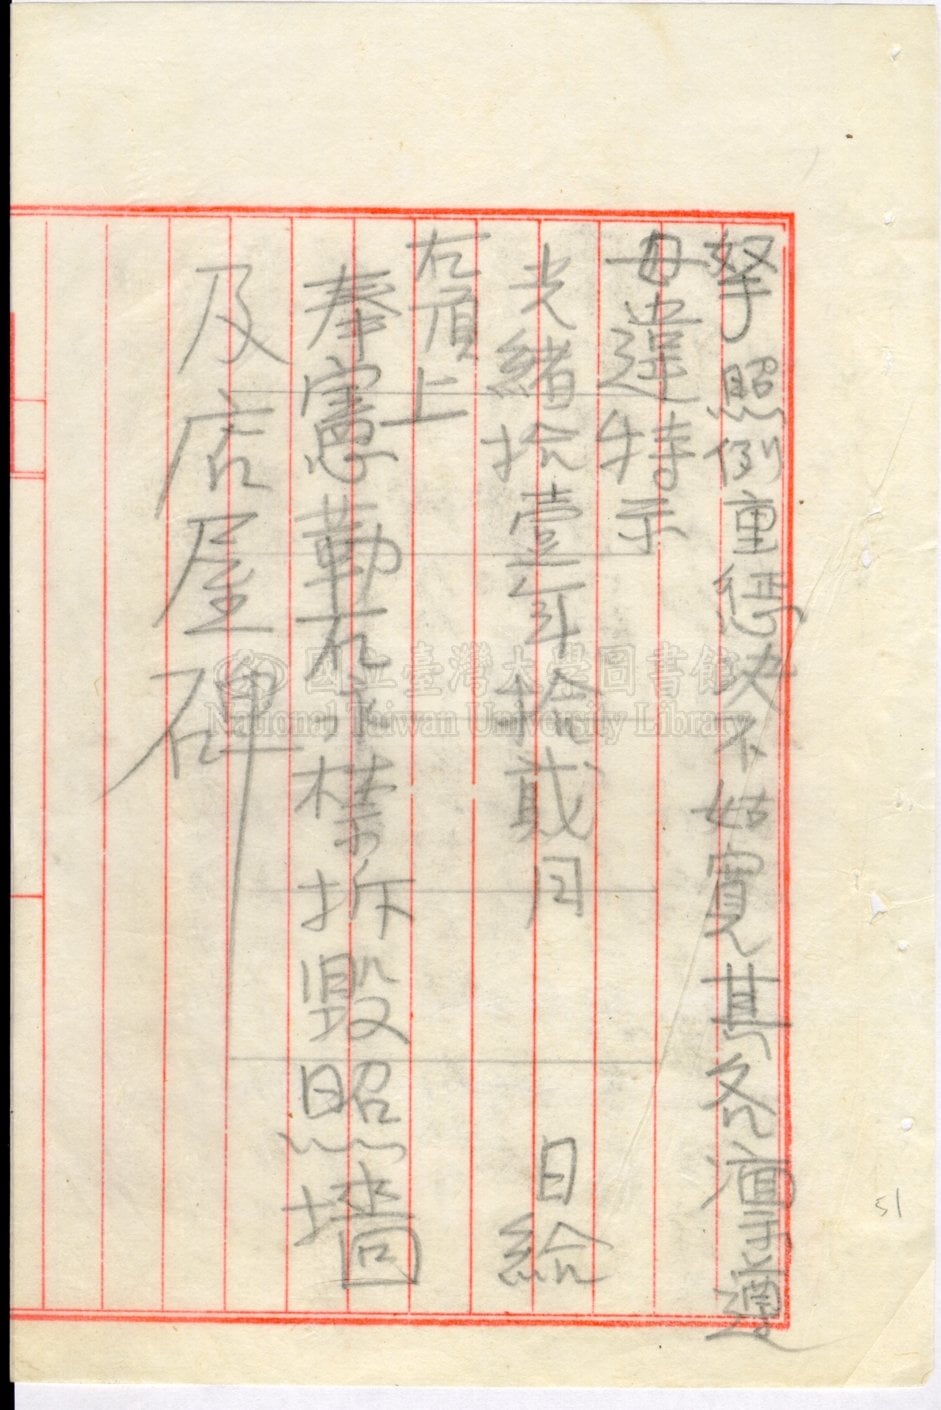 拏照例重懲決不姑寬其各凜遵
毋違特示
光緒拾壹年拾貳月 日給
石頂上
奉憲勒石永禁拆毀照墻
及店屋碑
國立臺灣大學圖書館
National Taiwan University Library
51